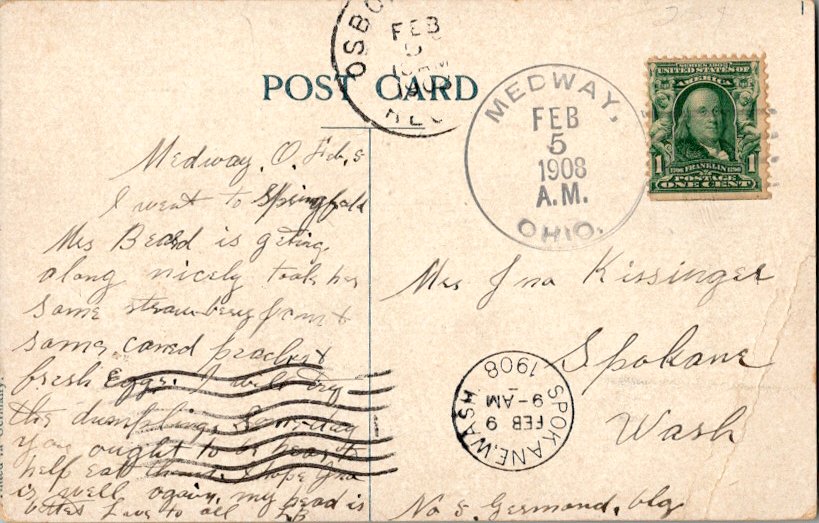 OSBO
FEB
5
10 AM
1908
REC
POST CARD
MEDWAY,
FEB
5
1908
A.M.
OHIO.
SERIES 1902
UNITED STATES OF
AMERICA
1 1
1706 FRANKLIN 1790
POSTAGE
ONE CENT
Medway, O. Feb, 5
I went to Springfield
Mrs Beard is geting
along nicely took her
some strawberry &
some caned peaches &
fresh eggs. I will try
the dumplings Someday
you ought to be hear to
help eat them. I hope Ina
is well again, my head is
Love to all
Mrs Ina Kissinger
Spokane
Wash
No 5. Germond, blg
SPOKANE, WASH.
FEB 9
9-AM
1908
Germany.